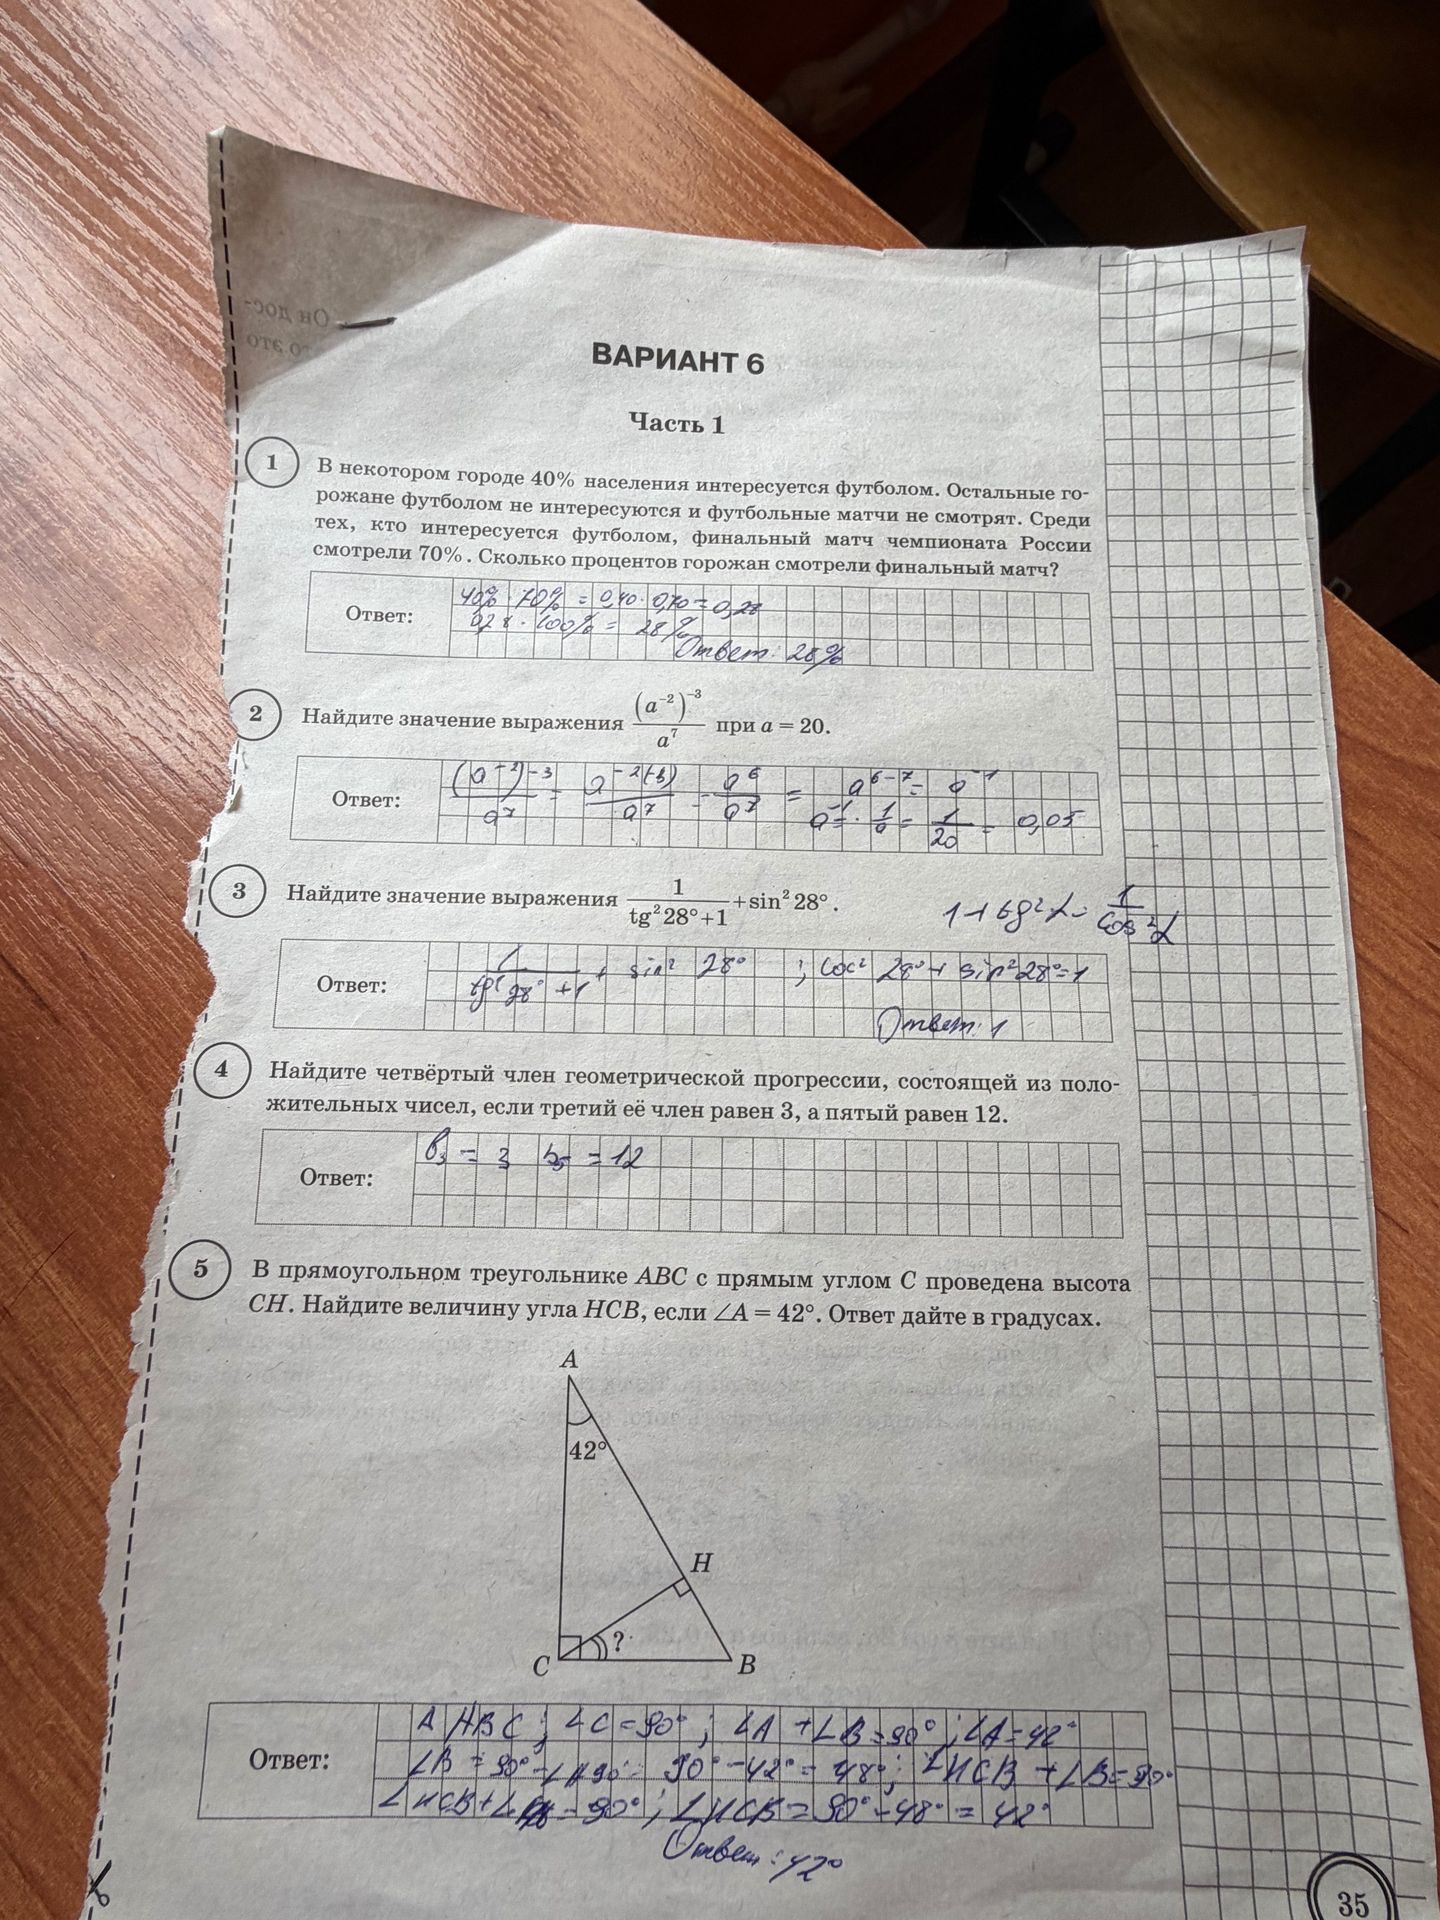 ВАРИАНТ 6
Часть 1
1
В некотором городе 40% населения интересуется футболом. Остальные го-
рожане футболом не интересуются и футбольные матчи не смотрят. Среди
тех, кто интересуется футболом, финальный матч чемпионата России
смотрели 70%. Сколько процентов горожан смотрели финальный матч?
Ответ:
40% · 70% = 0,40 · 0,70 = 0,28
0,28 · 100% = 28%
Ответ: 28%
2
Найдите значение выражения (a⁻²)⁻³/a⁷ при a = 20.
Ответ:
(a⁻²)⁻³/a⁷ = a⁻²⁽⁻³⁾/a⁷ = a⁶/a⁷ = a⁶⁻⁷ = a⁻¹
a⁻¹ = 1/a = 1/20 = 0,05
3
Найдите значение выражения 1/(tg²28°+1) + sin²28°.
1 + tg²α = 1/cos²α
Ответ:
1/(tg²28° + 1) + sin² 28° ; cos² 28° + sin² 28° = 1
Ответ: 1
4
Найдите четвёртый член геометрической прогрессии, состоящей из поло-
жительных чисел, если третий её член равен 3, а пятый равен 12.
Ответ:
b₃ = 3 b₅ = 12
5
В прямоугольном треугольнике ABC с прямым углом C проведена высота
CH. Найдите величину угла HCB, если ∠A = 42°. Ответ дайте в градусах.
A
42°
H
?
C
B
Ответ:
ABC; ∠C = 90°; ∠A + ∠B = 90°; ∠A = 42°
∠B = 90° - 90° - 42° = 48°; ∠HCB + ∠B = 90°
∠HCB + = 90°; ∠HCB = 90° - 48° = 42°
Ответ: 42°
35